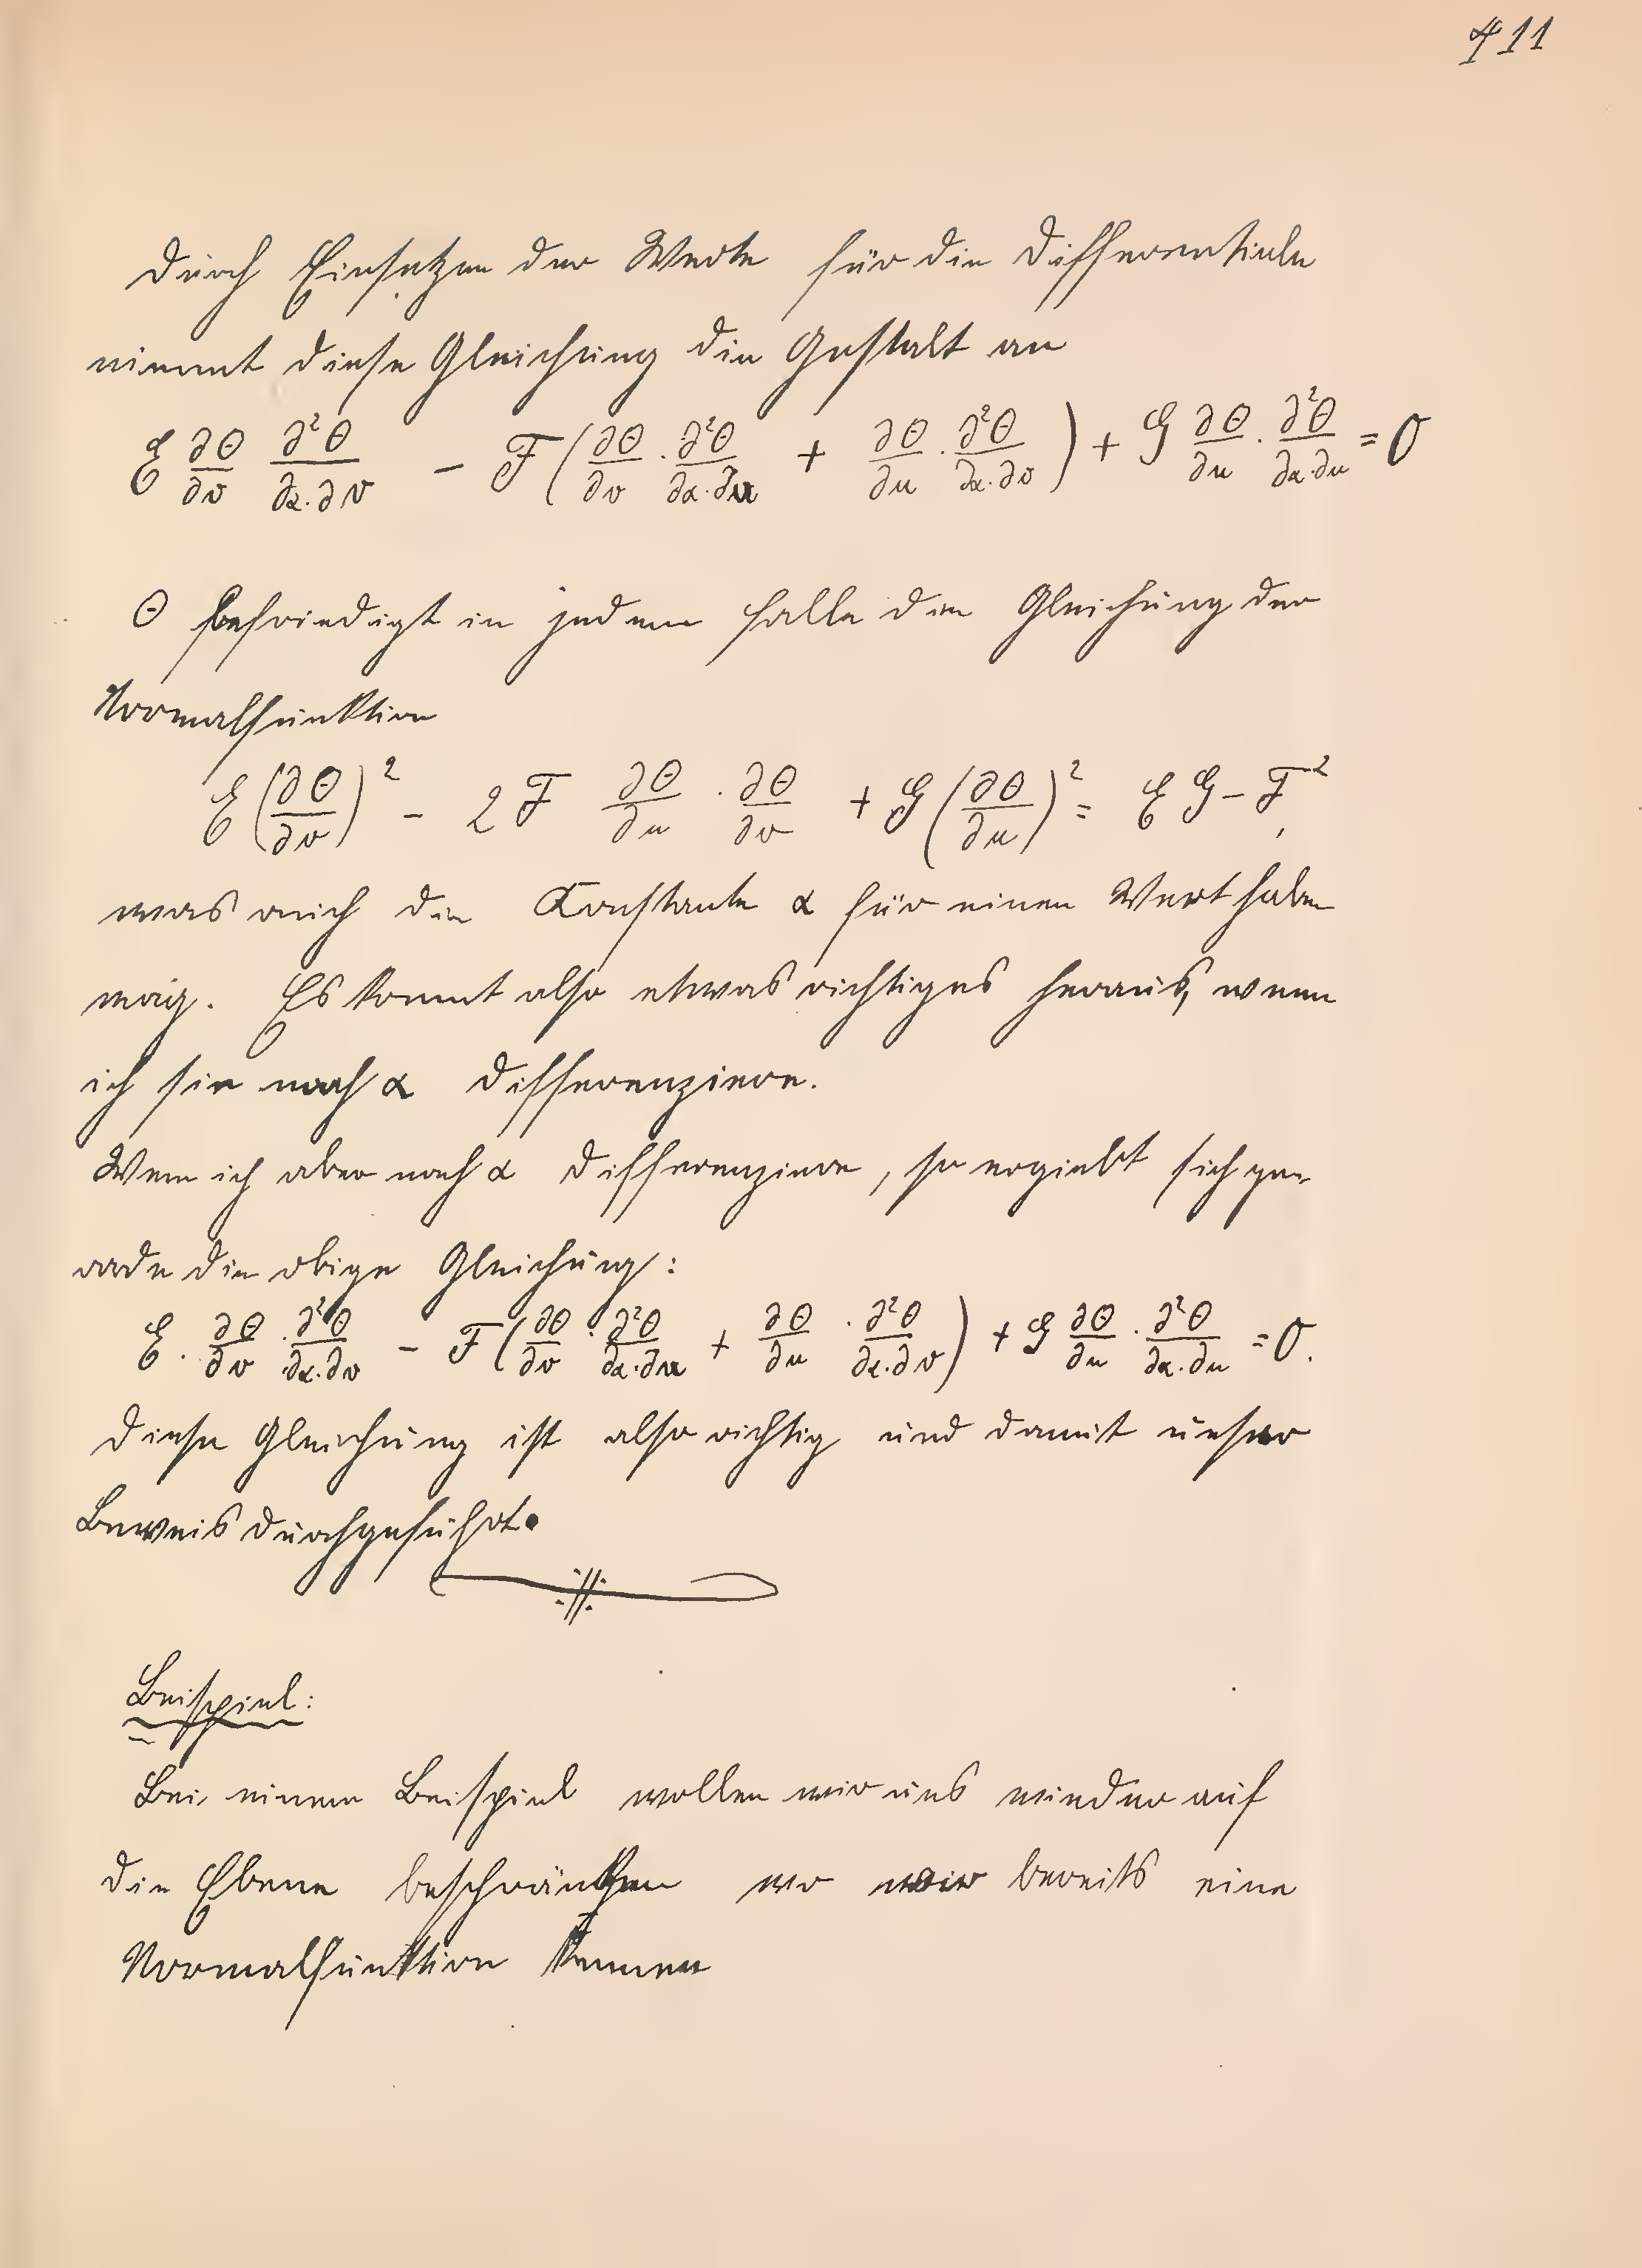 411
Durch Einsetzen der Werte für die Differentiale
nimmt diese Gleichung die Gestalt an
E ∂Θ/∂v ∂²Θ/∂α·∂v − F(∂Θ/∂v · ∂²Θ/∂α·∂u + ∂Θ/∂u · ∂²Θ/∂α·∂v) + G ∂Θ/∂u · ∂²Θ/∂α·∂u = 0
Θ befriedigt in jedem Falle die Gleichung der
Normalfunktion
E(∂Θ/∂v)² − 2F ∂Θ/∂u · ∂Θ/∂v + G(∂Θ/∂u)² = EG − F²,
was auch die Constante α für einen Wert haben
mag. Es kommt also etwas richtiges heraus, wenn
ich sie nach α differenziere.
Wenn ich aber nach α differenziere, so ergiebt sich ge-
rade die obige Gleichung:
E · ∂Θ/∂v · ∂²Θ/∂α·∂v − F(∂Θ/∂v · ∂²Θ/∂α·∂u + ∂Θ/∂u · ∂²Θ/∂α·∂v) + G ∂Θ/∂u · ∂²Θ/∂α·∂u = 0.
Diese Gleichung ist also richtig und damit unser
Beweis durchgeführt.
Beispiel:
Bei einem Beispiel wollen wir uns wieder auf
die Ebene beschränken wo wir bereits eine
Normalfunktion kennen